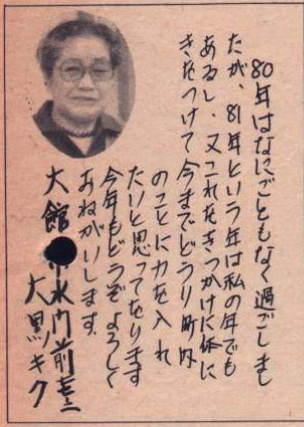 80年はなにごともなく過ごしまし
たが、81年という年は私の年でも
あるし、又これをきっかけに体に
きをつけて今までどうり町内
のことに力を入れ
たいと思ってをります
今年もどうぞよろしく
おねがいします。
大館市水門前
大黒キク